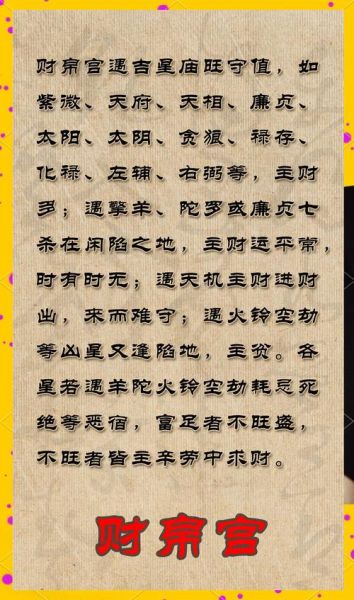 财帛宫遇吉星庙旺守值，如
紫微、天府、天相、廉贞、
太阳、太阴、贪狼、禄存、
化禄、左辅、右弼等，主财
多；遇擎羊、陀罗或廉贞七
杀在闲陷之地，主财运平常，
时有时无；遇天机主财进财
出，来而难守；遇火铃空劫
等凶星又逢陷地，主贫。各
星若遇羊陀火铃空劫耗忌死
绝等恶宿，富足者不旺盛，
不旺者皆主辛劳中求财。
财帛宫